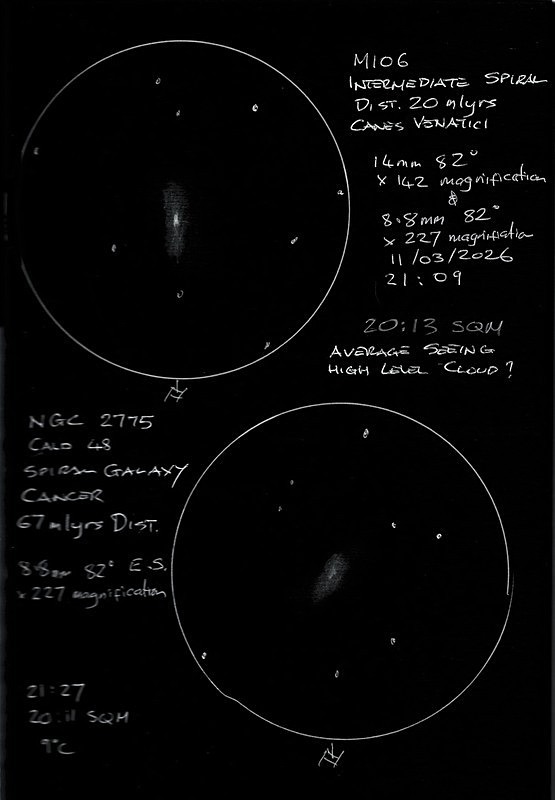 M106
INTERMEDIATE SPIRAL
DIST. 20 mlyrs
CANES VENATICI
14mm 82°
x 142 magnification
&
8.8mm 82°
x 227 magnification
11/03/2026
21:09
20:13 SQM
AVERAGE SEEING
HIGH LEVEL CLOUD?
N
NGC 2775
CALD 48
SPIRAL GALAXY
CANCER
67 mlyrs DIST.
8.8mm 82° E.S.
x 227 magnification
21:27
20:11 SQM
9°C
N